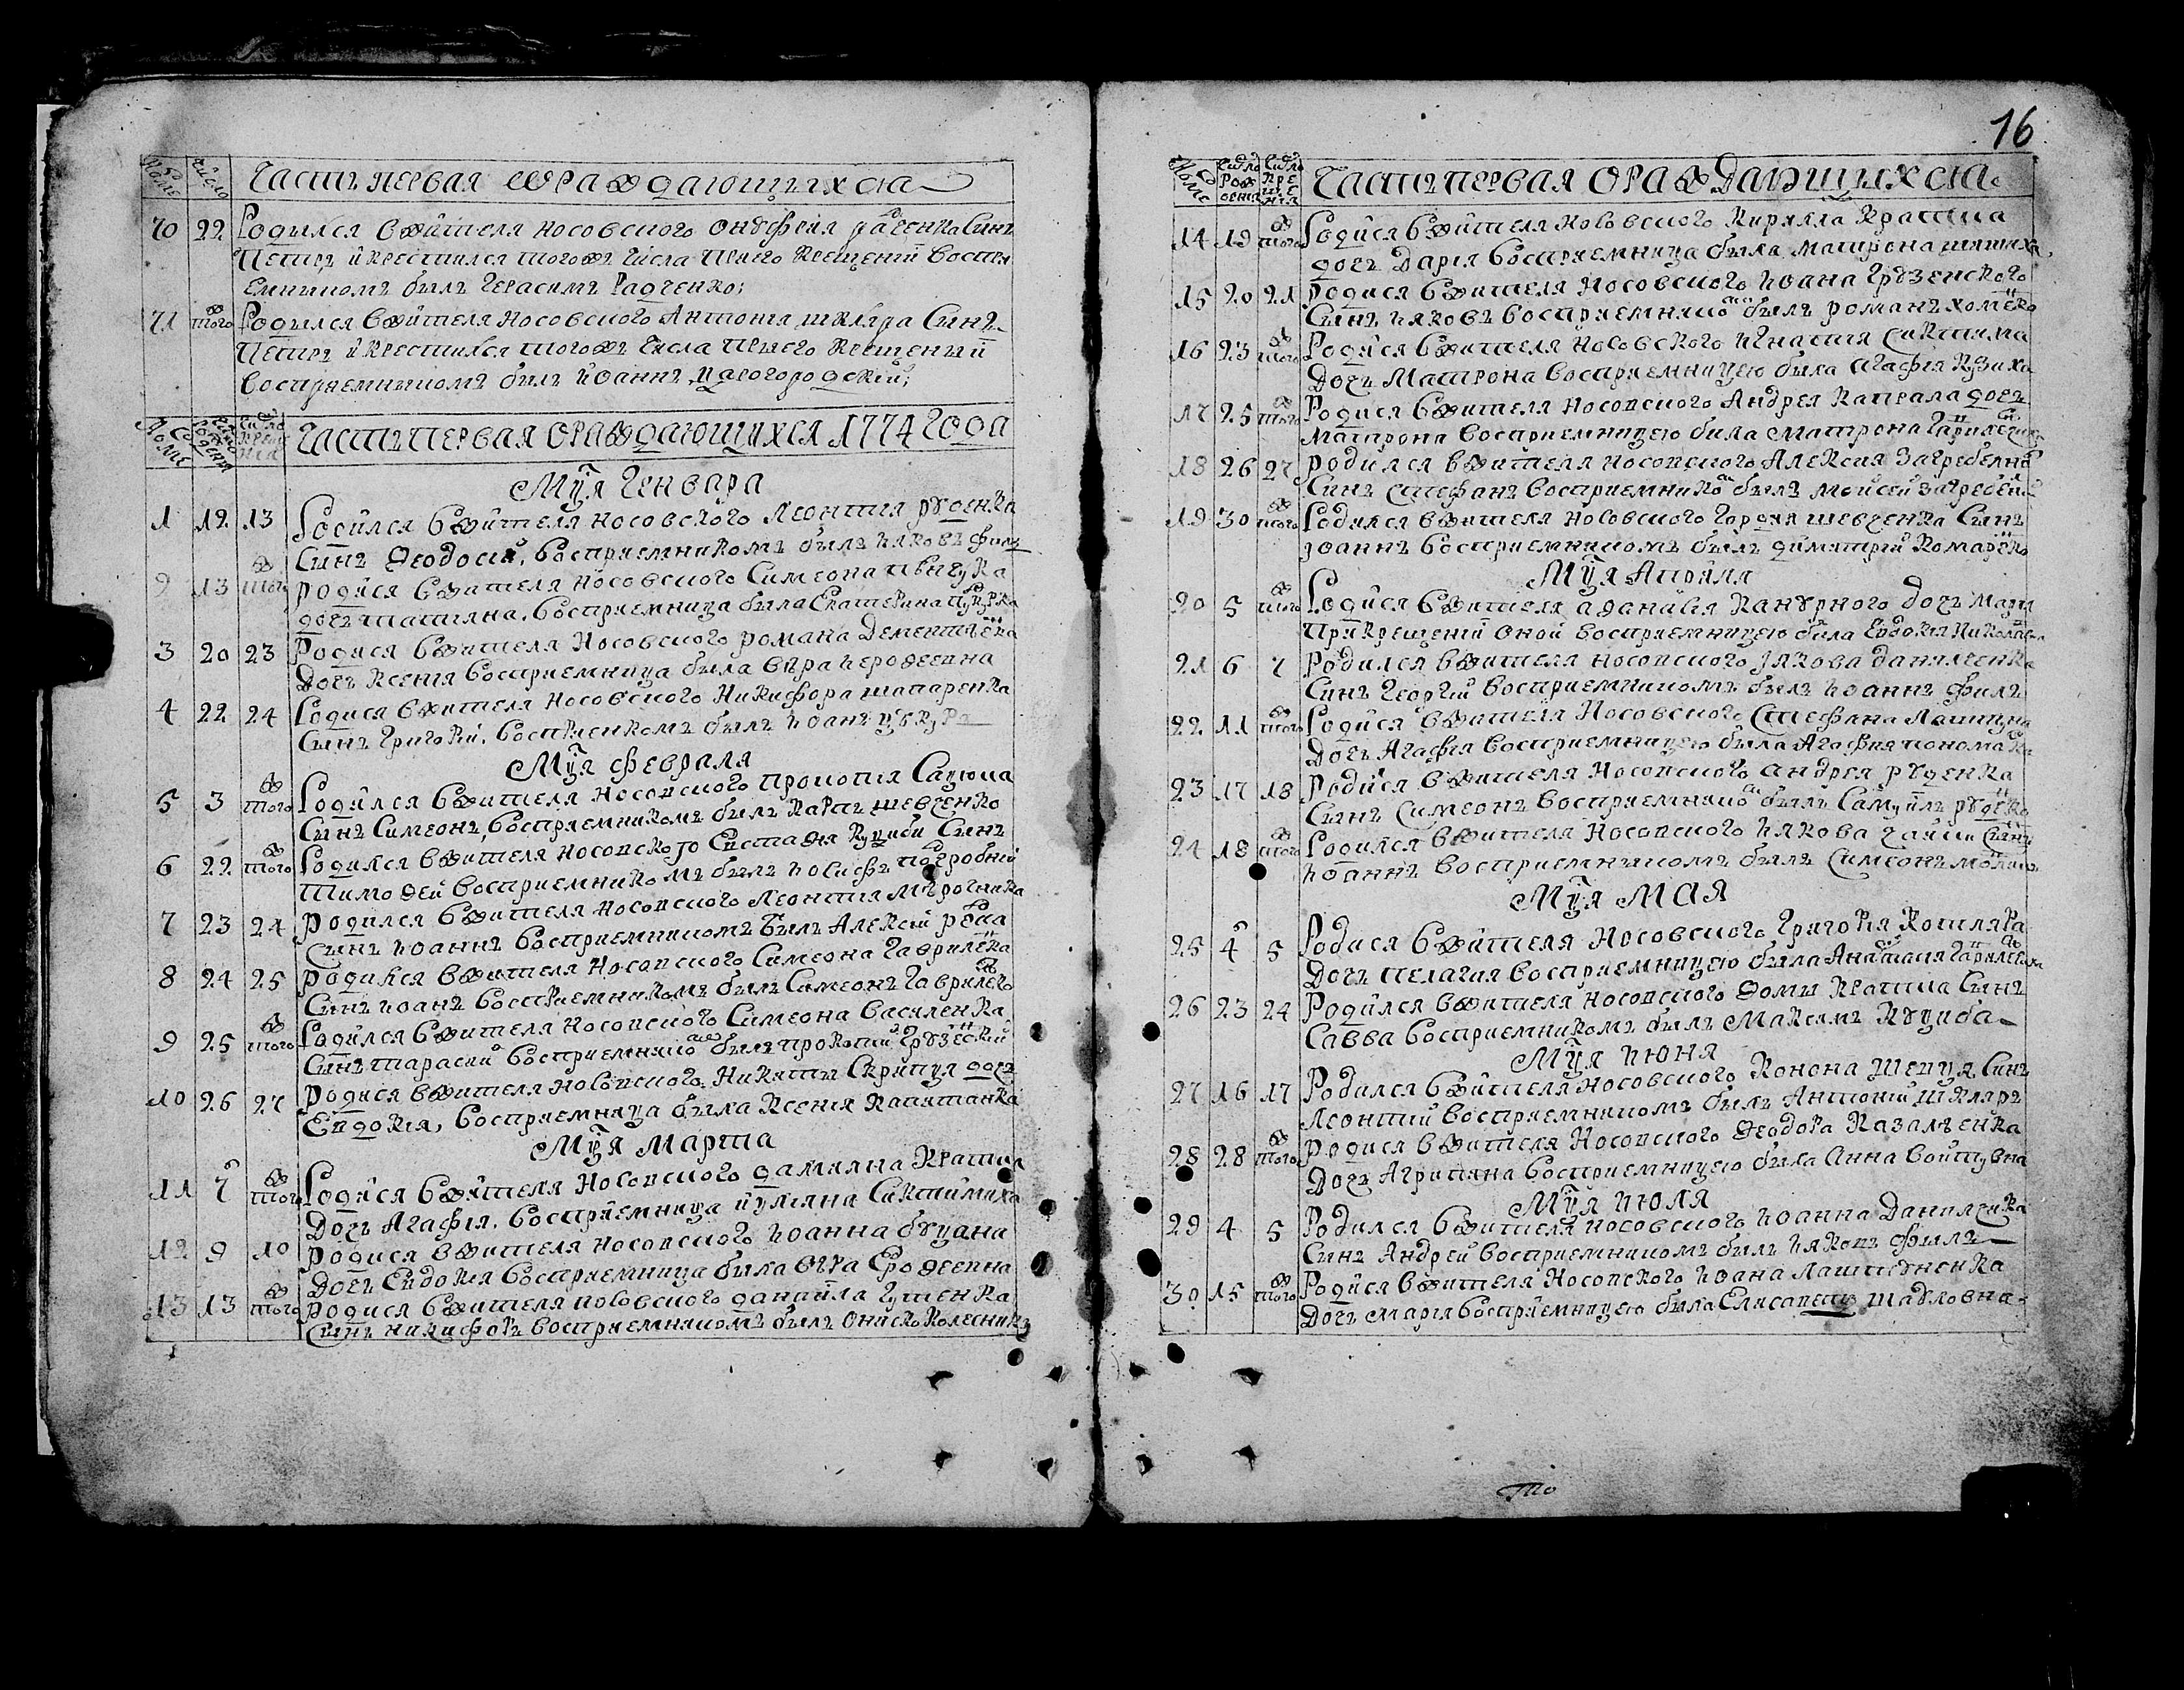 16
Номе Число Часть первая ѡ раждающихся
70 22 Родился в жителя носовского Онуфрия Синъ
Петръ и крестился того жъ Числа При его крещении воспри
емником былъ Герасимъ Радченко;
71 тогож Родился в жителя носовского Антона шкляра Синъ
Петръ и крестился того жъ числа При его крещении
восприемником былъ Иоаннъ Цареогородский;
Часть первая О раждающихся 1774 года
Мця Генвара
1 12 13 Родился в жителя носовского Леонтия руденка
Синъ Феодосий, восприемникомъ былъ Іяковъ филъ
2 13 тогож родися в жителя носовского Симеона
дочъ татиана. восприемница была Екатерина
3 20 23 Родися в жителя Носовского романа Дементиенка
Дочъ Ксения восприемница была вѣра Іерофеевна
4 22 24 Родися в жителя носовского Никифора шапаренка
Синъ Григорий. восприемникомъ былъ Іоанъ
Мця февраля
5 3 тогож Родился в жителя носовского Прокопия Сацюка
Синъ Симеонъ, восприемникомъ былъ Карпъ шевченко
6 22 тогож Родился в жителя носовского Евстафия Куциби Синъ
Тимофей восприемникомъ былъ Іосифъ погробний
7 23 24 родился в жителя носовского Леонтия мѣрошника
Синъ Іоаннъ восприемникомъ былъ Алексий
8 24 25 родился в жителя носовского Симеона Гавриленка
Синъ Іоанъ восприемникомъ былъ Симеонъ Гавриленко
9 25 тогож Родился в жителя носовского Симеона василенка
Синъ тарасий восприемником былъ прокопий Грузский
10 26 27 родися в жителя носовского Никити Скрипця дочъ
Евдокия, восприемница была Ксения Капитанка
Мця Марта
11 7 тогож Родися в жителя носовского дамияна Кратка
Дочъ Агафия. восприемница иулияна Сиктимиха
12 9 10 родися в жителя носовского Іоанна буцана
Дочъ Евдокия восприемница была вѣра Ерофеевна
13 13 тогож родися в жителя носовского даниила Гутенка
Синъ никифоръ восприемникомъ былъ Ониско Колесникъ
Часть первая О раждающихся
14 19 тогож Родися в жителя носовского Кирилла Кратка
дочъ Дария восприемница была матрона
15 20 21 родися в жителя Носовского Іоана Грузенского
Синъ Іяковъ восприемником былъ романъ хоменко
16 23 тогож Родися в жителя носовского Игнатия Сиктима
Дочъ Матрона восприемницею была Агафия Кузиха
17 25 тогож Родися в жителя носовского Андрея Капрала дочъ
Матрона восприемницею была Матрона Гавриленкова
18 26 27 родился в жителя носовского Алексия Загребелного
Синъ Стефанъ восприемником былъ Моисей Загребелний
19 30 тогож Родился в жителя носовского Гордия шевченка Синъ
Іоаннъ восприемникомъ былъ димитрий Комаренко
Мця Априля
20 5 тогож Родися в жителя афанасия Канурного дочъ Мария
При крещении оной восприемницею была Евдокия
21 6 7 Родился в жителя носовского Іякова даниленка
Синъ Георгий восприемникомъ былъ Іоаннъ филъ
22 11 тогож Родися в жителя Носовского Стефана
Дочъ Агафия восприемницею была Агафия пономарка
23 17 18 Родися в жителя Носовского андрея руденка
Синъ Симеонъ восприемником былъ Самуилъ руденко
24 18 тогож Родился в жителя Носовского Іякова гайки Синъ
Іоаннъ восприемникомъ былъ Симеонъ
Мця Мая
25 4 5 Родися в жителя Носовского Григория Котляра
Дочъ пелагия восприемницею была Анастасия Гавриленкова
26 23 24 Родился в жителя носовского Фомы Кратка Синъ
Савва восприемникомъ былъ Максимъ Куциба
Мця Июня
27 16 17 Родился в жителя носовского Конона Шепця Синъ
Леонтий восприемникомъ былъ Антоний шкляръ
28 28 тогож родися в жителя Носовского Феодора Казаленка
Дочъ Агрипина восприемницею была Анна войтувна
Мця Июля
29 4 5 Родился в жителя носовского Іоанна Даниленка
Синъ Андрей восприемникомъ былъ Іяковъ филъ
30 15 тогож Родися в жителя Носовского Іоана
Дочъ Мария восприемницею была Елисаветъ шауловна